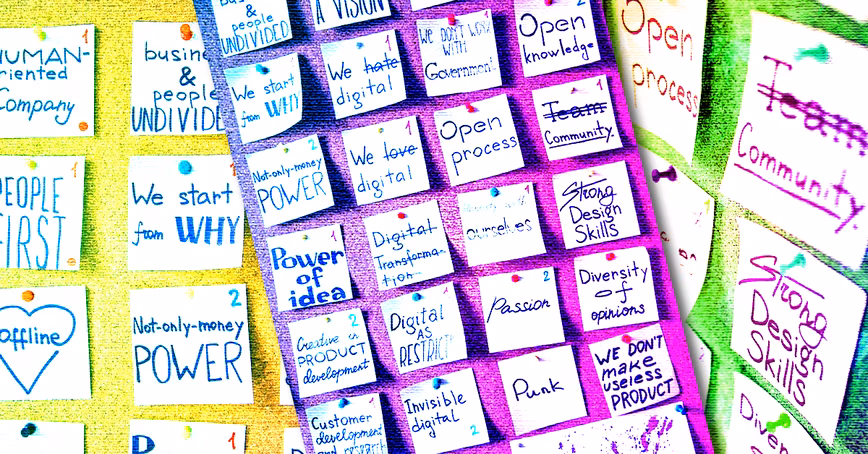 HUMAN-
riented
Company
1
busine
&
people
UNDIVIDE
PEOPLE
FIRST
1
We start
from WHY
offline
Not-only-money
POWER
2
1
&
people
UNDIVIDED
2
A VISION
WE DON'T WORK
WITH
Government
Open
knowledge
2
We start
from WHY
1
We hate
digital
1
Open
process
1
Team
Community.
1
Not-only-money
POWER
2
We love
digital
1
ourselves
Strong
Design
Skills
Power
of
idea
1
Digital
Transforma-
tion
1
Passion
2
Diversity
of
opinions
Creative in
PRODUCT
development
2
Digital
AS
RESTRICT
1
Punk
WE DON'T
make
useless
PRODUCT
Customer
development
and research
Invisible
digital
2
Open
process
1
Team
Community.
Strong
Design
Skills
Diver